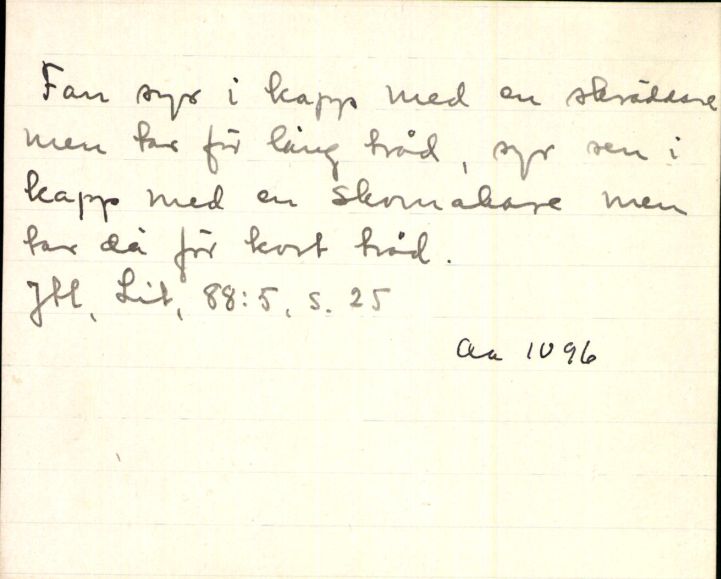 Fan syr i kapp med en skräddare
men tar för lång tråd, syr sen i
kapp med en skomakare men
tar då för kort tråd.
Jtl, Lit, 88:5, s. 25
Aa 1096